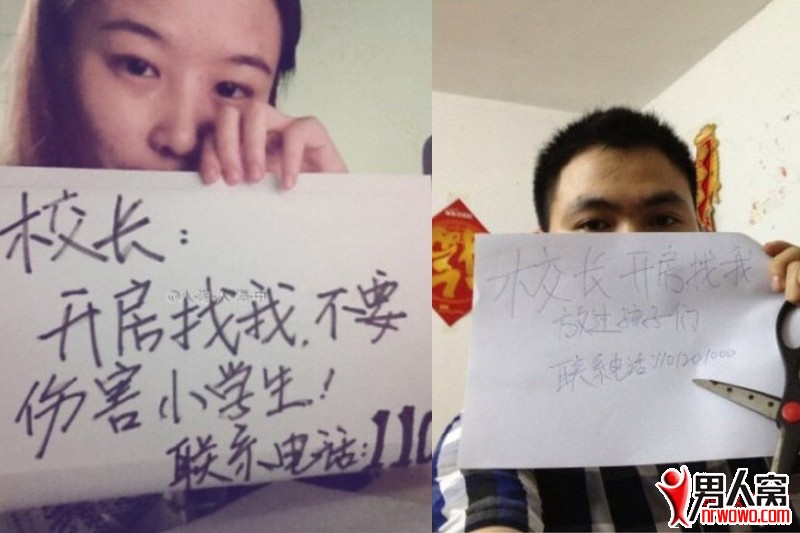 校长：
开房找我，不要
伤害小学生！
联系电话：110
校长开房找我
放过孩子们
联系电话：1101201000
男人窝
nrwowo.com